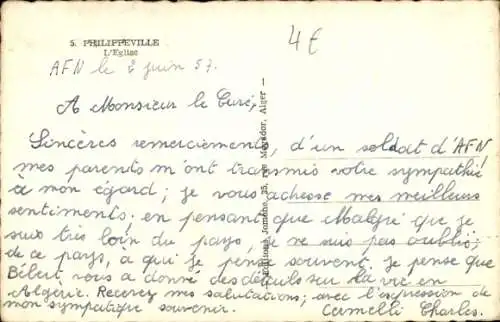 5. PHILIPPEVILLE
L'Eglise
4€
AFN le 2 juin 57.
A Monsieur le Curé,
Sincères remerciements, d'un soldat d'AFN
mes parents m'ont transmis votre sympathie
à mon égard; je vous adresse mes meilleurs
sentiments. en pensant que Malgré que je
suis très loin du pays, je ne suis pas oublié;
de ce pays, a qui je pense souvent. je pense que
vous a donné des détails sur la vie en
Algérie. Recevez mes salutations; avec l'expression de
mon sympatique souvenir. Charles.
Editions Jomone, 25, rue Mogador, Alger